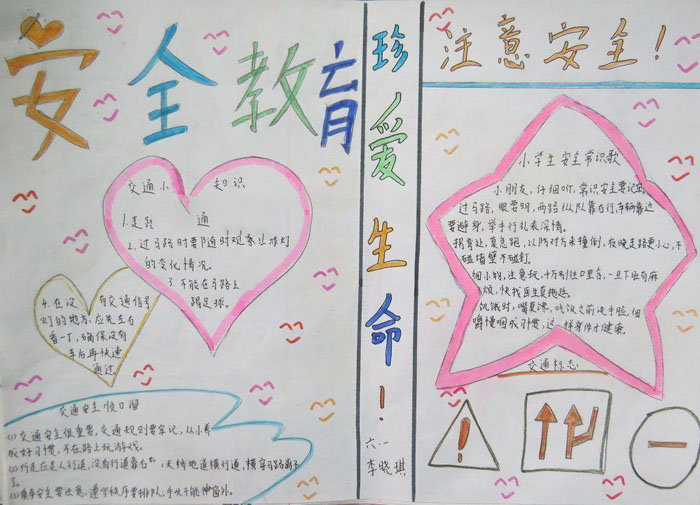 安全教育
交通小知识
1.走路 通
2.过马路时要随时观察红绿灯
的变化情况。
3.不能在马路上
踢足球。
4.在没有交通信号
灯的地方,应先左右
看一下,确保没有
车后再快速
通过
交通安全顺口溜
(1)交通安全很重要,交通规则要牢记,从小养
成好习惯,不在路上玩游戏。
(2)行走应走人行道,没有行道靠右
天桥地道横行道,横穿马路离不
了。
(3)乘车安全要注意,遵守秩序要排队;手头不能伸窗外。
珍爱生命!
六一
李晓琪
注意安全!
小学生安全常识歌
小朋友,仔细听,常识安全要记
过马路,眼要明,两路纵队靠右行,车辆靠边
要避身,举手行礼表深情。
拐弯处,莫急跑,以防对方来撞倒,夜晚走路更小心,不
碰墙壁不碰钉。
细小物,注意玩,千万别往口里含,一旦下咽有麻
烦,快找医生莫拖延。
饥饿时,嘴莫馋,吃饭之前洗手脸,细
嚼慢咽成习惯,这样身体才健康。
交通标志
!